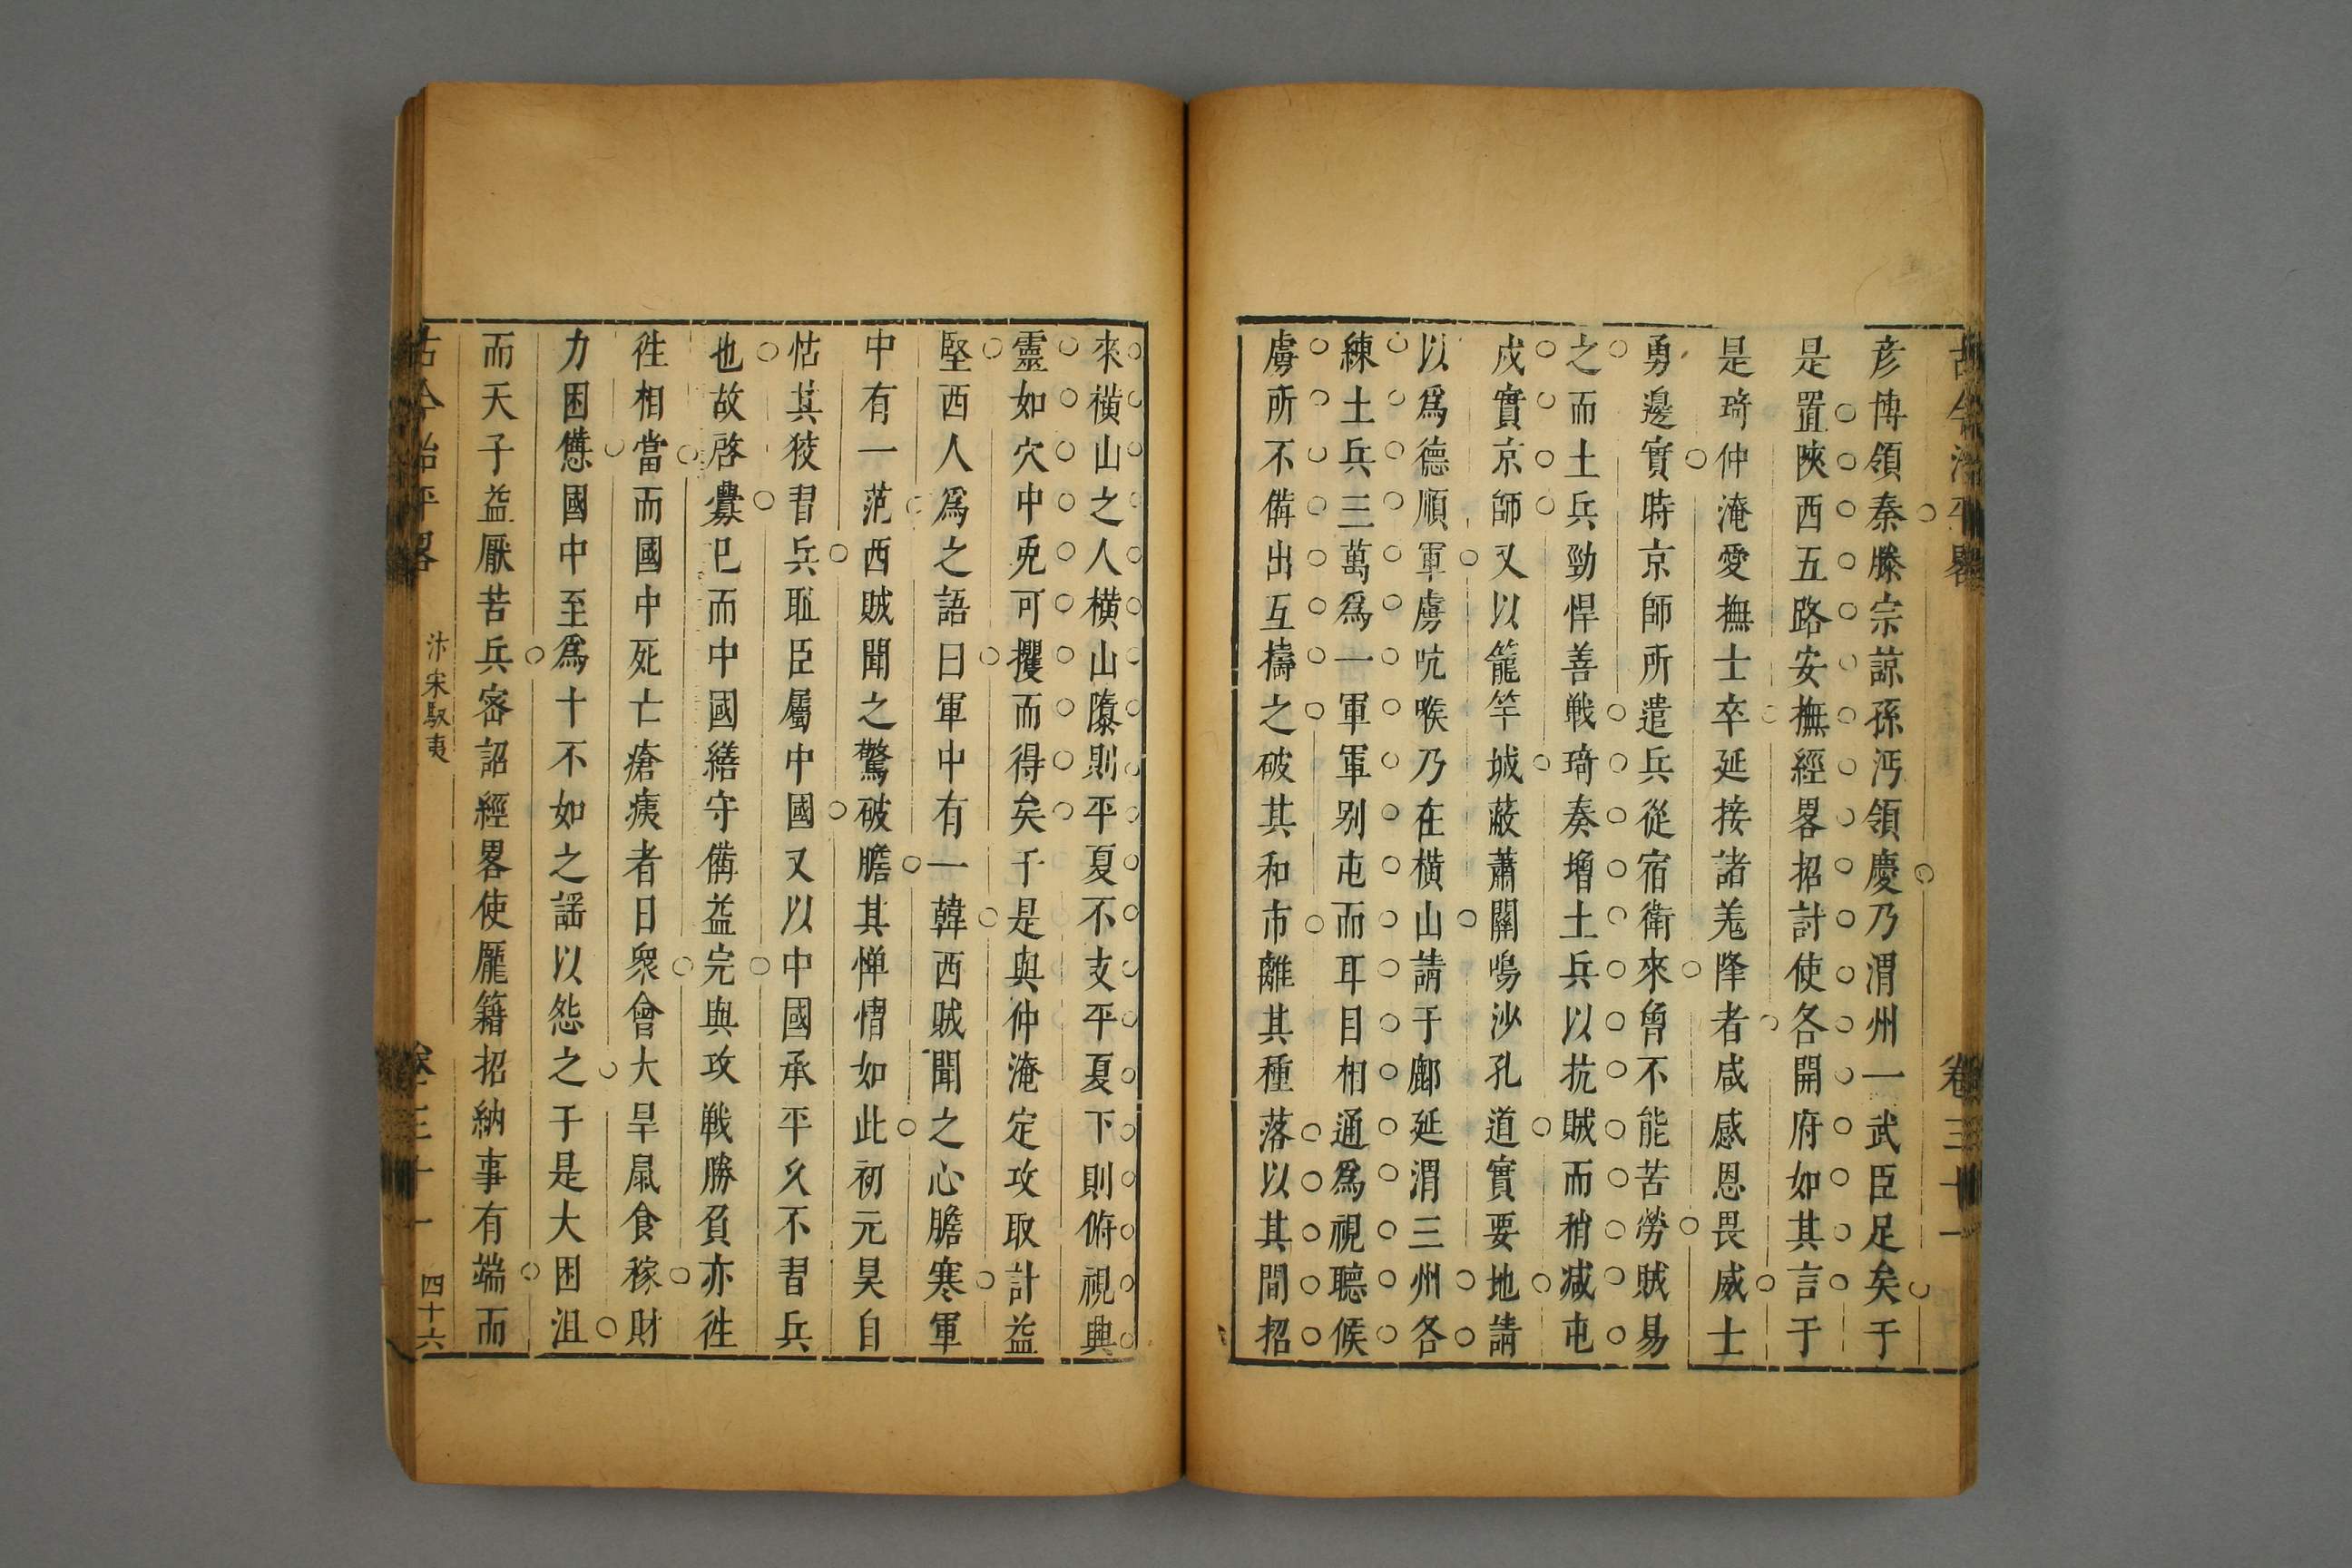 古今治平畧 卷三十一
彦博領秦滕宗諒孫沔領慶乃渭州一武臣足矣于
是置陝西五路安撫經畧招討使各開府如其言于
是琦仲淹愛撫士卒延接諸羗降者咸感恩畏威士
勇邊實時京師所遣兵從宿衛來曾不能苦勞賊易
之而土兵勁悍善戰琦奏增土兵以抗賊而稍減屯
戍實京師又以籠竿城蔽蕭關鳴沙孔道實要地請
以爲德順軍虜吭喉乃在橫山請于鄜延渭三州各
練土兵三萬爲一軍軍别屯而耳目相通爲視聽候
虜所不備出互擣之破其和市離其種落以其間招
來橫山之人橫山隳則平夏不支平夏下則俯視興
靈如穴中兎可攫而得矣于是與仲淹定攻取計益
堅西人爲之語曰軍中有一韓西賊聞之心膽寒軍
中有一范西賊聞之驚破膽其憚慴如此初元昊自
怙其狡習兵耻臣屬中國又以中國承平久不習兵
也故啓釁已而中國繕守備益完與攻戰勝負亦徃
徃相當而國中死亡瘡痍者日衆會大旱鼠食稼財
力困憊國中至爲十不如之謡以怨之于是大困沮
而天子益厭苦兵密詔經畧使龐籍招納事有端而
古今治平畧 汴宋馭夷 卷三十一 四十六